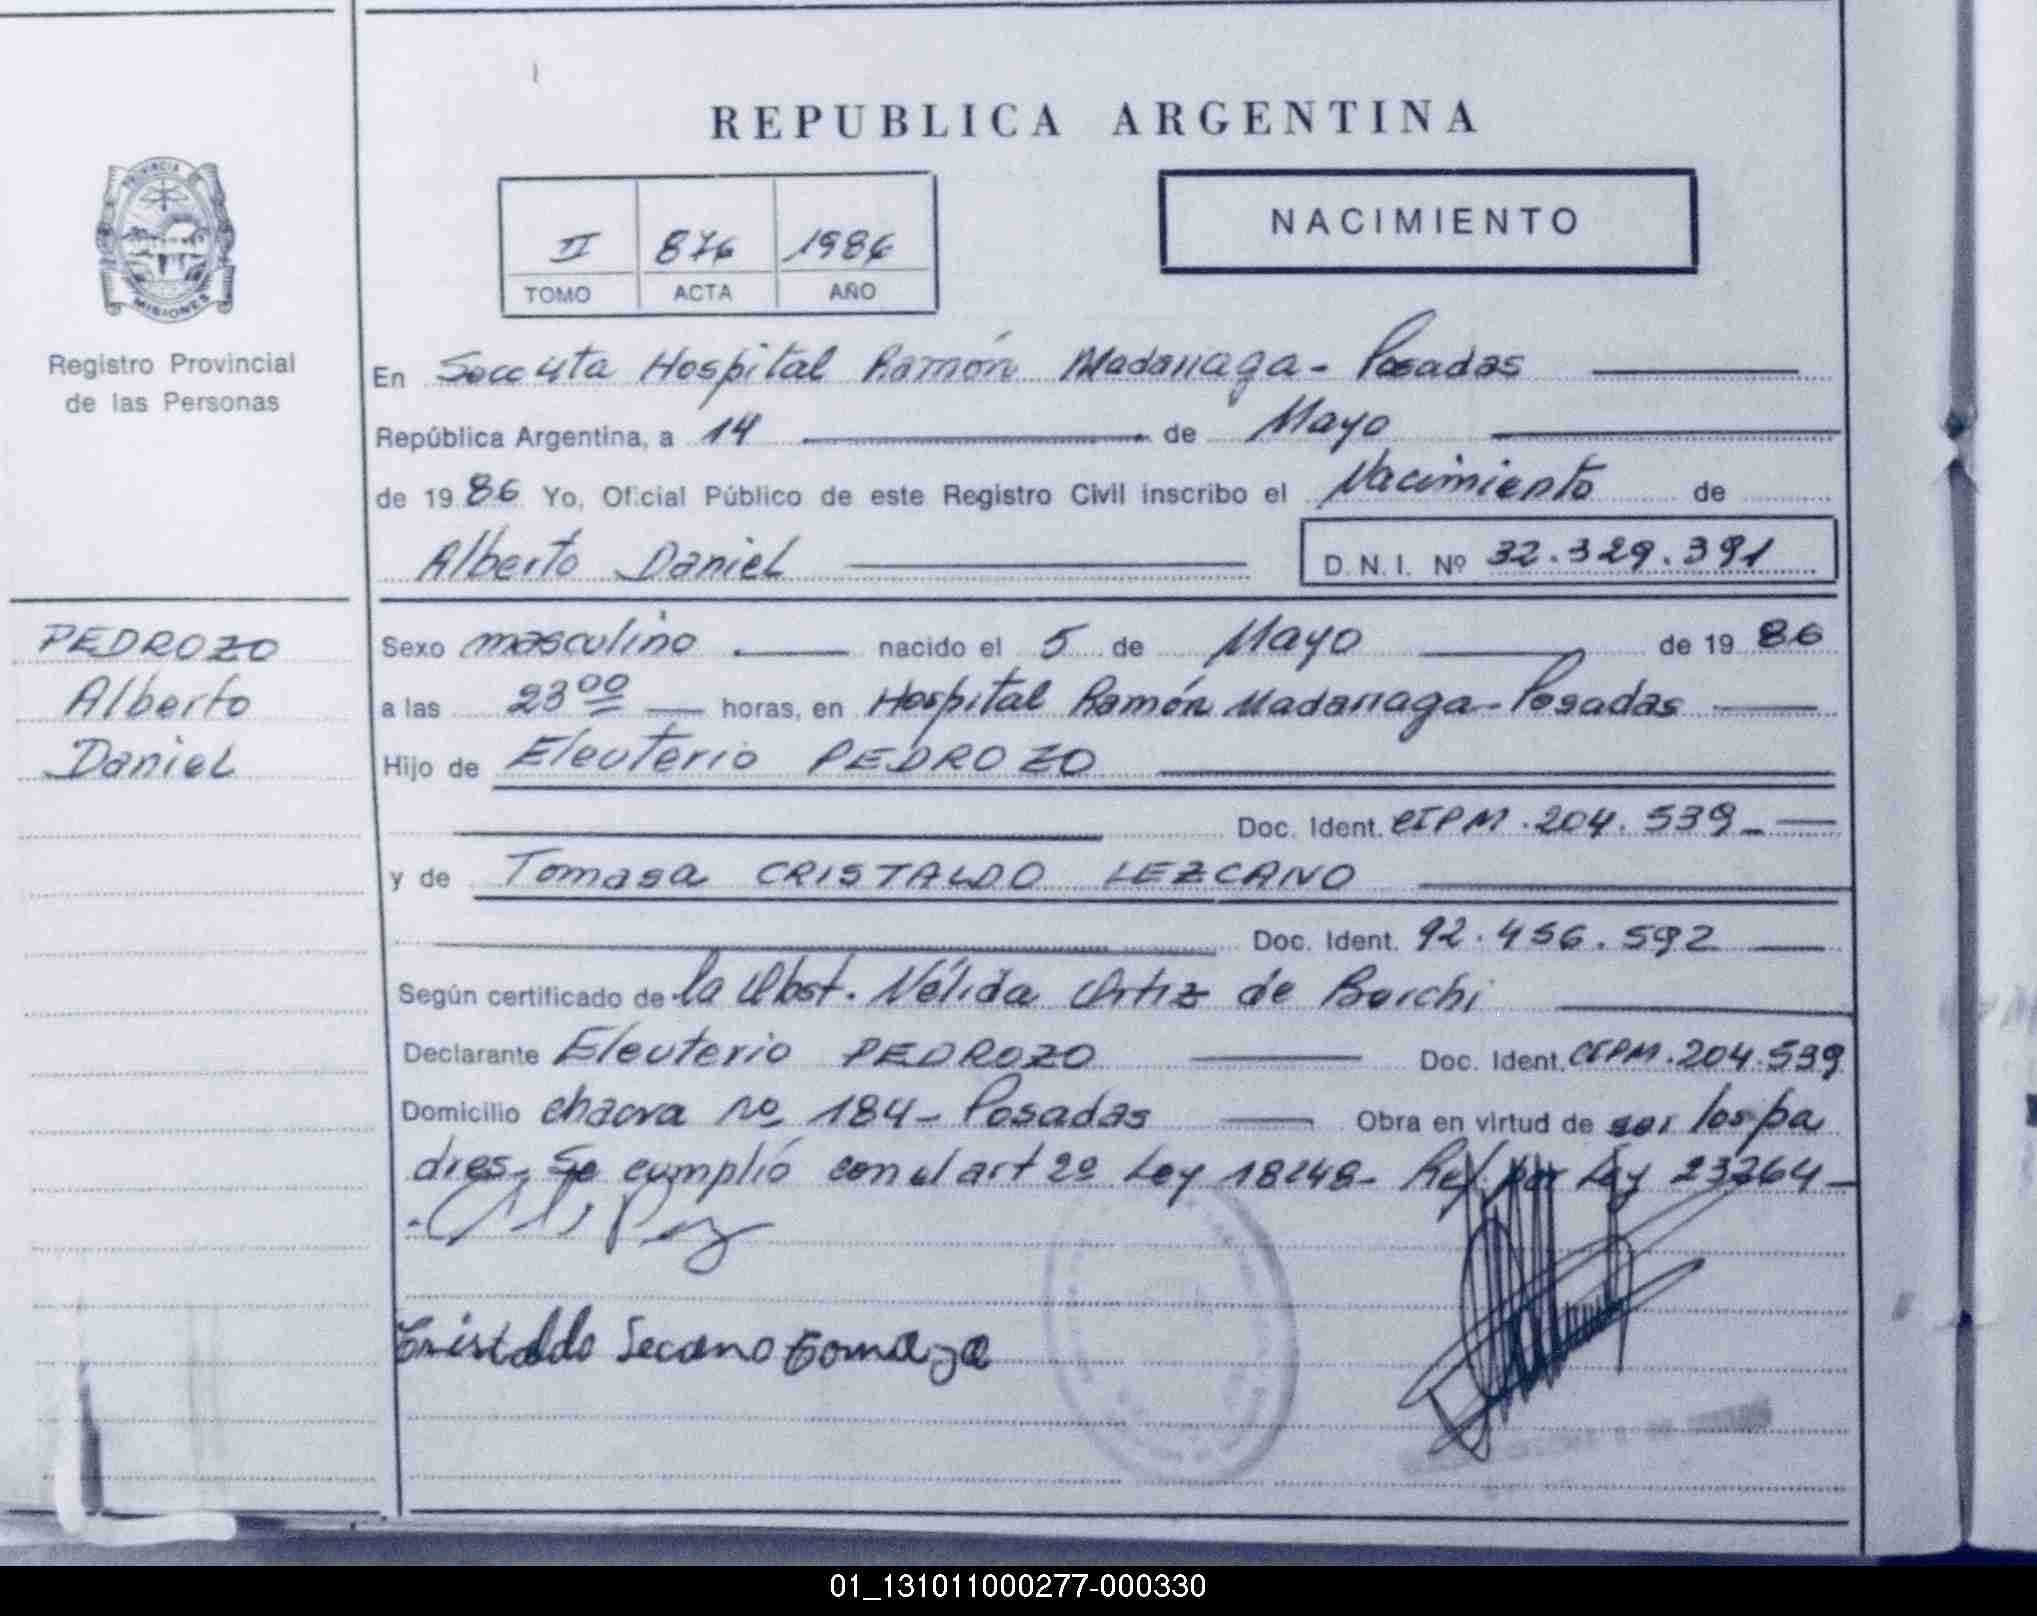 REPUBLICA ARGENTINA
PROVINCIA DE MISIONES
Registro Provincial
de las Personas
II 876 1986
TOMO ACTA AÑO
NACIMIENTO
En Hospital Ramón Madariaga - Posadas
República Argentina, a 14 de Mayo
de 1986 Yo, Oficial Público de este Registro Civil inscribo el Nacimiento de
Alberto Daniel D.N.I. Nº 32.329.391
PEDROZO
Alberto
Daniel
Sexo masculino nacido el 5 de Mayo de 1986
a las 23 00 horas, en Hospital Ramón Madariaga - Posadas
Hijo de Eleuterio PEDROZO
Doc. Ident. CIPM.204.539
y de Tomasa CRISTALDO LEZCANO
Doc. Ident. 92.456.592
Según certificado de la Obst. Nélida Ortiz de Borchi
Declarante Eleuterio PEDROZO Doc. Ident. CIPM.204.539
Domicilio chacra nº 184 - Posadas Obra en virtud de ser los pa
dres. Se cumplió con el art 2º Ley 18248 - Ref. por Ley 23264 -
Cristaldo Lecano Tomaza
01_131011000277-000330